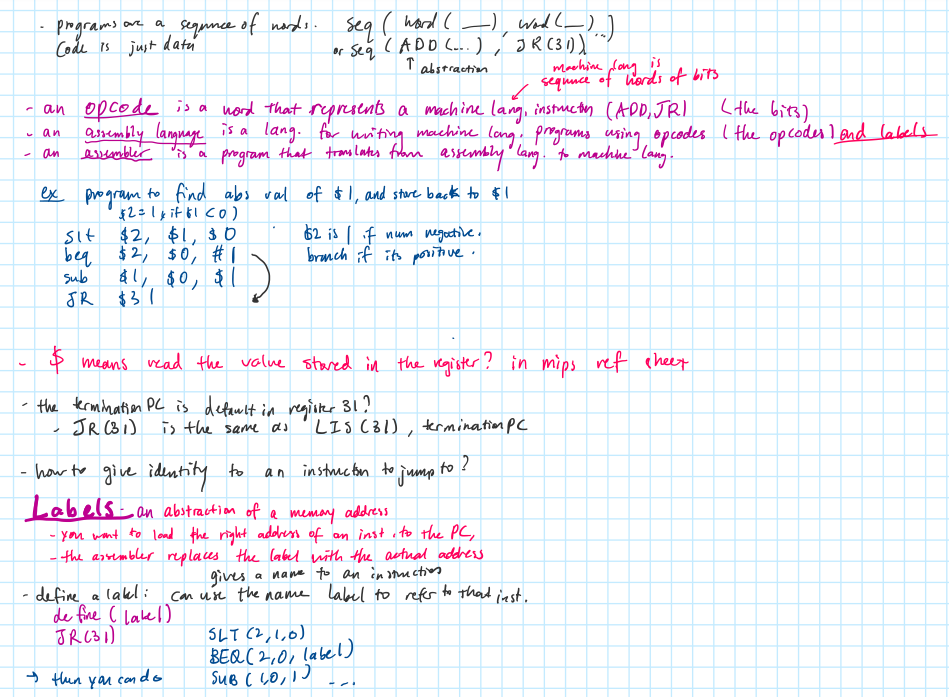 - programs are a sequence of words. Seq ( word ( __ ), word ( __ ) ..)
Code is just data or Seq ( ADD (...) , JR(31)) ..
↑ abstraction
machine lang is sequence of words of bits
- an opcode is a word that represents a machine lang. instructn (ADD, JR) (the bits)
- an assembly language is a lang. for writing machine lang. programs using opcodes (the opcodes) and labels
- an assembler is a program that translates from assembly lang. to machine lang.
ex program to find abs val of $1, and store back to $1
$2 = 1 if $1 < 0)
slt $2, $1, $0 $2 is 1 if num negative.
beq $2, $0, #1 branch if its positive.
sub $1, $0, $1
JR $31
- $ means read the value stored in the register? in mips ref sheet
- the termination PC is default in register 31?
- JR(31) is the same as LIS(31), termination PC
- how to give identity to an instructn to jump to?
Labels - an abstraction of a memory address
- you want to load the right address of an inst. to the PC,
- the assembler replaces the label with the actual address
gives a name to an instruction
- define a label: can use the name label to refer to that inst.
define (label)
JR(31) SLT (2,1,0)
BEQ(2,0, label)
→ then you can do SUB (1,0,1) ...